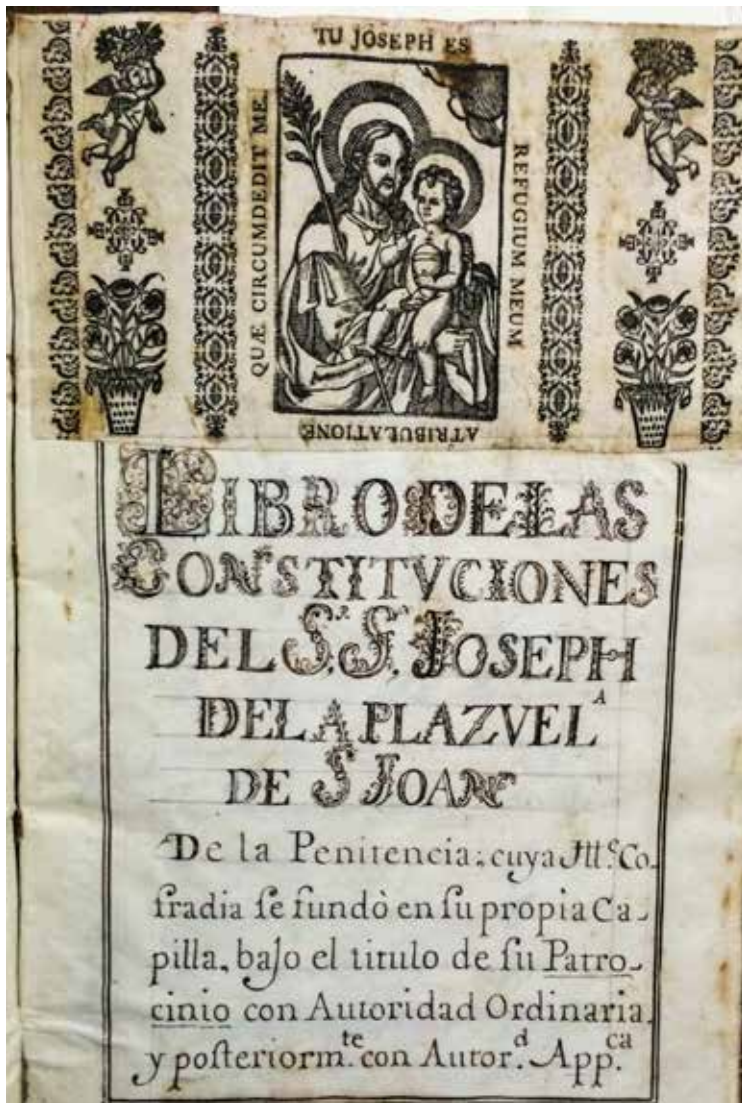 TU JOSEPH ES
REFUGIUM MEUM
ATRIBULATIONE
QUÆ CIRCUMDEDIT ME.
LIBRO DE LAS
CONSTITVCIONES
DEL S.r S.n JOSEPH
DE LA PLAZVELA
DE S JOAN
De la Penitencia; cuya Ill.e Co-
fradia ſe fundò en ſu propia Ca-
pilla, bajo el titulo de ſu Patro-
cinio con Autoridad Ordinaria.
y poſteriorm.te con Autor.d App.ca